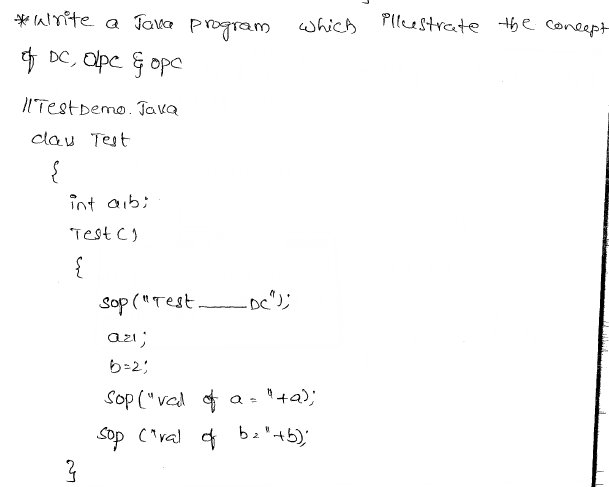 * Write a Java program which illustrate the concept
of DC, OPC & OPC
// TestDemo.Java
class Test
{
int a,b;
Test()
{
sop("Test ___ DC");
a=1;
b=2;
sop("val of a = "+a);
sop ("val of b="+b);
}